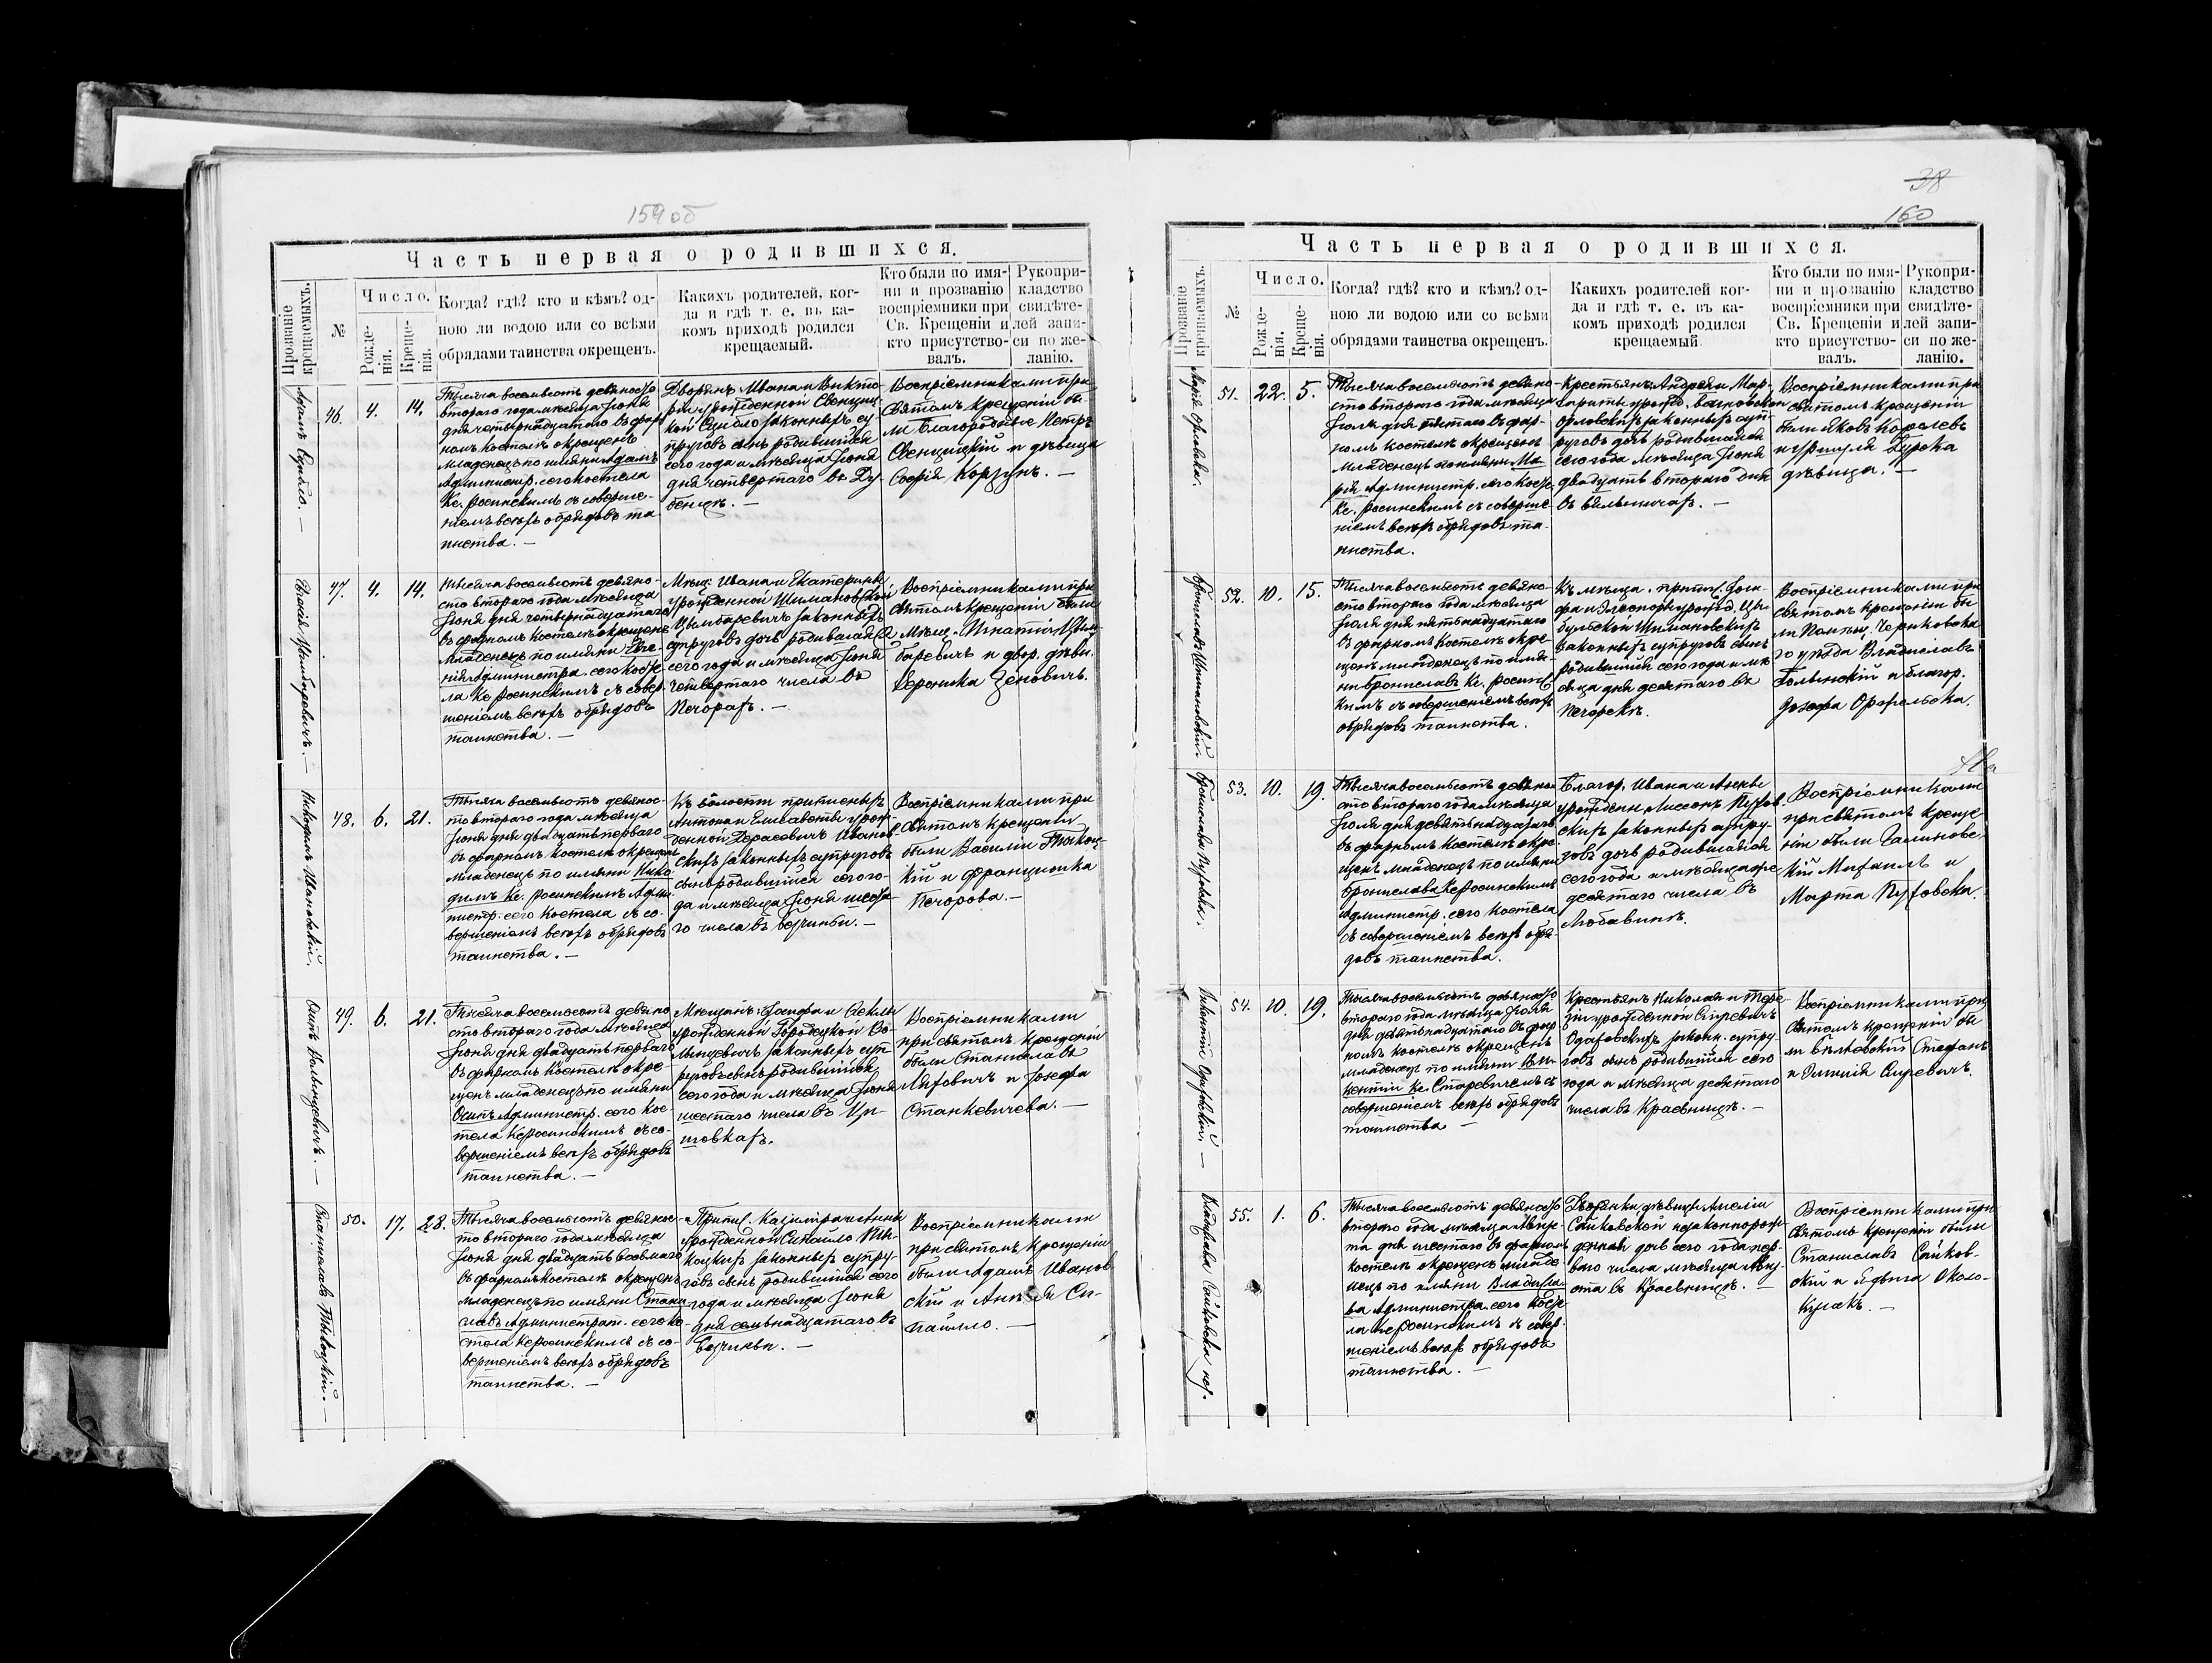 159 об
Часть первая о родившихся.
Прозваніе крещаемыхъ.
№
Число.
Рожде-
нія.
Креще-
нія.
Когда? гдѣ? кто и кѣмъ? од-
ною ли водою или со всѣми
обрядами таинства окрещенъ.
Какихъ родителей, ког-
да и гдѣ т. е. въ ка-
комъ приходѣ родился
крещаемый.
Кто были по имя-
ни и прозванію
воспріемники при
Св. Крещеніи и
кто присутство-
валъ.
Рукопри-
кладство
свидѣте-
лей запи-
си по же-
ланію.
Адамъ
46. 4. 14.
Тысяча восемьсотъ девяносто
втораго года мѣсяца Іюня
дня четырнадцатаго въ фар
номъ костелѣ окрещенъ
младенецъ по имяни Адамъ
Администр. сего костела
Кс. Росинскимъ съ соверше-
ніемъ всѣхъ обрядовъ та
инства. —
Дворянъ Ивана и Викто-
ріи урожденной Свенциц-
кой законныхъ су
пруговъ сынъ родившійся
сего года и мѣсяца Іюня
дня четвертаго въ Ду-
бенцѣ. —
Воспріемниками при
Святомъ крещеніи бы-
ли Благородные Петръ
Свенцицкій и дѣвица
Софія Корзунъ. —
Цымбаревичъ. —
47. 4. 14.
Тысяча восемьсотъ девяно-
сто втораго года мѣсяца
Іюня дня четырнадцатаго
въ фарномъ костелѣ окрещенъ
младенецъ по имяни Евге-
нія Администра. сего косте
ла Кс Росинскимъ съ совер-
шеніемъ всѣхъ обрядовъ
таинства. —
Мѣщ. Ивана и Екатерины
урожденной Шимановской
Цымбаревичъ законныхъ
супруговъ дочь родившаяся
сего года и мѣсяца Іюня
четвертаго числа въ
Печорахъ. —
Воспріемниками при
Святомъ крещеніи были
Мѣщ. Игнатій Цым-
баревичъ и двор. дѣви.
Вероника Ценовичъ.
Никодимъ Ивановскій.
48. 6. 21.
Тысяча восемьсотъ девянос-
то втораго года мѣсяца
Іюня дня двадцать перваго
въ фарномъ костелѣ окрещенъ
младенецъ по имяни Нико
димъ Кс. Росинскимъ Адми-
нистр. сего костела съ со-
вершеніемъ всѣхъ обрядовъ
таинства. —
Къ волости приписныхъ
Антона и Елисаветы урож-
денной Герасевичъ Иванов-
скихъ законныхъ супруговъ
сынъ родившійся сего го-
да и мѣсяца Іюня шеста-
го числа въ
Воспріемниками при
Святомъ крещеніи
были Василій
кій и Францишка
Печорова. —
Осипъ
49. 6. 21.
Тысяча восемьсотъ девяно
сто втораго года мѣсяца
Іюня дня двадцать перваго
въ фарномъ костелѣ окре-
щенъ младенецъ по имяни
Осипъ Администр. сего кос
тела Кс Росинскимъ съ со-
вершеніемъ всѣхъ обрядовъ
таинства. —
Мѣщанъ Іосифа и Теклы
урожденной Городецкой
законныхъ суп
руговъ сынъ родившійся
сего года и мѣсяца Іюня
шестаго числа въ
Воспріемниками
при святомъ крещеніи
были Станиславъ
и Іозефа
Станкевичева. —
Станиславъ
50. 17. 28.
Тысяча восемьсотъ девянос-
то втораго года мѣсяца
Іюня дня двадцать восьмаго
въ фарномъ костелѣ окрещенъ
младенецъ по имяни Стани
славъ Администрат. сего ко-
стела Кс Росинскимъ съ со-
вершеніемъ всѣхъ обрядовъ
таинства. —
Припис. Казиміра и Анны
урожденной Сипайло
законныхъ супру-
говъ сынъ родившійся сего
года и мѣсяца Іюня
дня семьнадцатаго въ
Воспріемниками
при святомъ крещеніи
были Адамъ Иванов-
скій и Анна Си-
пайлло. —
38
160
Часть первая о родившихся.
Прозваніе крещаемыхъ
№
Число.
Рожде-
нія.
Креще-
нія.
Когда? гдѣ? кто и кѣмъ? од-
ною ли водою или со всѣми
обрядами таинства окрещенъ.
Какихъ родителей ког-
да и гдѣ т. е. въ ка-
комъ приходѣ родился
крещаемый
Кто были по имя-
ни и прозванію
воспріемники при
Св. Крещеніи и
кто присутство-
валъ.
Рукопри-
кладство
свидѣте-
лей запи-
си по же-
ланію.
Марія Орловска.
51. 22. 5.
Тысяча восемьсотъ девяно-
сто втораго года мѣсяца
Іюля дня пятаго въ фар-
номъ костелѣ окрещенъ
младенецъ по имяни Ма-
рія Администр. сего косте.
Кс. Росинскимъ съ соверше-
ніемъ всѣхъ обрядовъ та-
инства.
Крестьянъ Андрея и Мар-
гариты урожд.
Орловскихъ законныхъ суп-
руговъ дочь родившаяся
сего года мѣсяца Іюня
двадцать втораго дня
въ
Воспріемниками при
святомъ крещеніи
были Яковъ Королевъ
и Уршуля Турска
дѣвица. —
Брониславъ Шимановскій
52. 10. 15.
Тысяча восемьсотъ девяно-
сто втораго года мѣсяца
Іюля дня пятьнадцатаго
въ фарномъ костелѣ окре-
щенъ младенецъ по имя-
ни Брониславъ Кс. Росинс
кимъ съ совершеніемъ всѣхъ
обрядовъ таинства.
Къ мѣща. припис. Іоси-
фа и Элеоноры урожд. Цы-
бульской Шимановскихъ
законныхъ супруговъ сынъ
родившійся сего года и мѣ
сяца дня десятаго въ
Печорскѣ.
Воспріемниками при
святомъ крещеніи бы
ли Помѣщ. Чериковска
го уѣзда Владиславъ
Голынскій и благор.
Іозефа
Бронислава Пуховска.
53. 10. 19.
Тысяча восемьсотъ девянос
сто втораго года мѣсяца
Іюля дня девятьнадцатаго
въ фарномъ костелѣ окре-
щенъ младенецъ по имяни
Бронислава Кс Росинскимъ
Администр. сего костела
съ совершеніемъ всѣхъ обря-
довъ таинства.
Благор. Ивана и Анны
урожден. Лисонъ Пухов-
скихъ законныхъ супру-
говъ дочь родившаяся
сего года и мѣсяца же
десятаго числа въ
Любавинѣ.
Воспріемниками
при святомъ креще
ніи были Галиновс
кій Михаилъ и
Марта Пуховска.
Викентій
54. 10. 19.
Тысяча восемьсотъ девяносто
втораго года мѣсяца Іюля
дня девятьнадцатаго въ фар
номъ костелѣ окрещенъ
младенецъ по имяни Вин-
кентій Кс. Старевичемъ съ
совершеніемъ всѣхъ обрядовъ
таинства —
Крестьянъ Николая и Тере
зіи урожденной Сиревичъ
законн. супру-
говъ сынъ родившійся сего
года и мѣсяца десятаго
числа въ Краевницѣ. —
Воспріемниками при
Святомъ крещеніи бы
ли Стефанъ
и Сиревичъ.
Владислава Сайковска
55. 1. 6.
Тысяча восемьсотъ девяносто
втораго года мѣсяца Авгус-
та дня шестаго въ фарномъ
костелѣ окрещенъ младе
нецъ по имяни Владисла-
ва Администра. сего косте
ла Кс Росинскимъ съ совер-
шеніемъ всѣхъ обрядовъ
таинства. —
Дворянки дѣвицы Анеліи
Сайковской незаконнорож-
денная дочь сего года пер-
ваго числа мѣсяца Авгу-
ста въ Краевницѣ. —
Воспріемниками при
Святомъ крещеніи были
Станиславъ Сайков-
скій и Ядвига Около-
Кулакъ. —